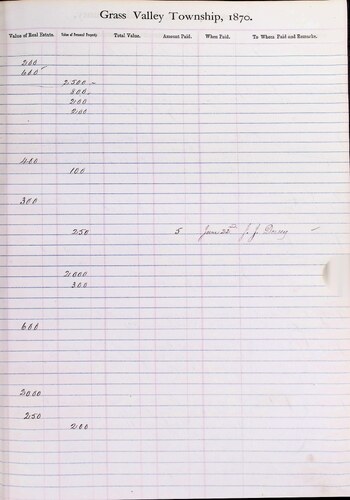 Grass Valley Township, 1870.
Value of Real Estate. Value of Personal Property Total Value. Amount Paid. When Paid. To Whom Paid and Remarks.
200
600
2500
800
200
200
400
100
300
250 5 Jan 25th J. J.
2000
300
600
2000
250
200